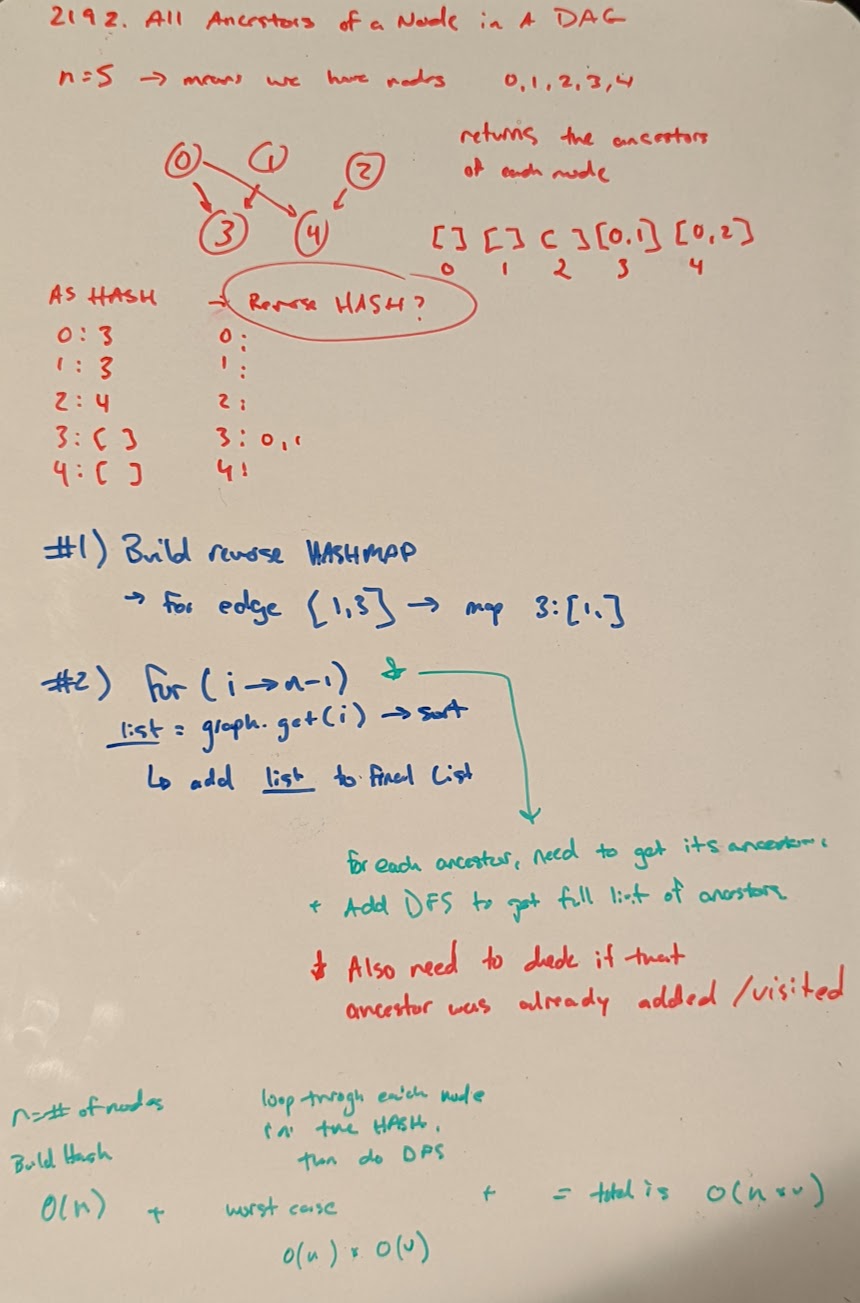 2192. All Ancestors of a Node in A DAG
n=5 → means we have nodes 0,1,2,3,4
returns the ancestors
of each node
0 1 2
3 4
[ ] [ ] [ ] [0,1] [0,2]
0 1 2 3 4
AS HASH → Reverse HASH?
0: 3 0:
1: 3 1:
2: 4 2:
3: [ ] 3: 0,1
4: [ ] 4:
#1) Build reverse HASHMAP
→ For edge [1,3] → map 3:[1,]
#2) For (i→n-1)
list = graph.get(i) → sort
↳ add list to final list
for each ancestor, need to get its ancestors
+ Add DFS to get full list of ancestors
Also need to check if that
ancestor was already added/visited
n=# of nodes
loop throgh each node
in the HASH,
then do DFS
Build Hash
O(n) + worst case + = total is O(n*v)
O(n) * O(v)